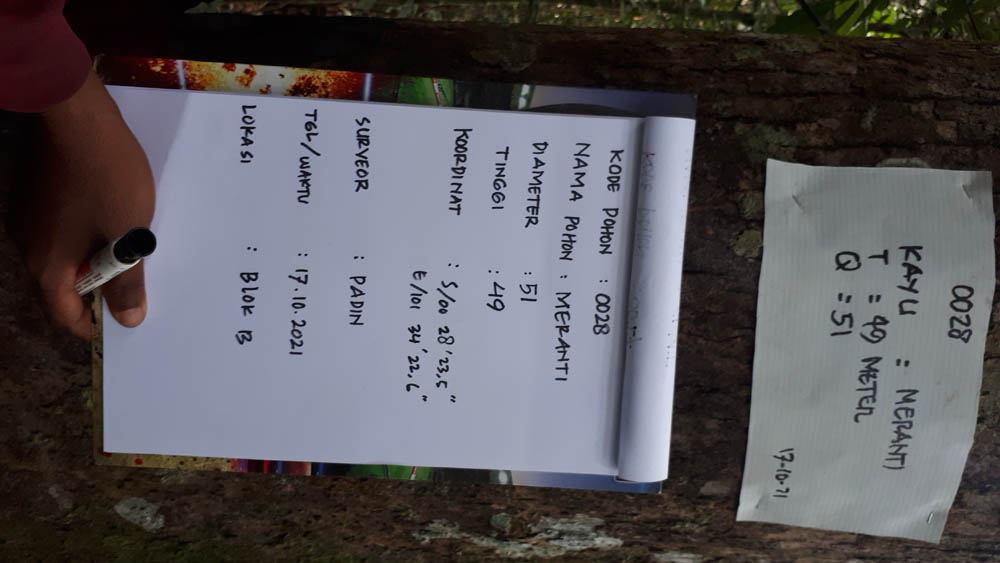 0028
KAYU : MERANTI
T = 49 METER
Q = 51
17-10-21
KODE POHON : 0028
NAMA POHON : MERANTI
DIAMETER : 51
TINGGI : 49
KOORDINAT : S/00 28'23,5"
E/101 34'22,6"
SURVEOR : PADIN
TGL/WAKTU : 17.10.2021
LOKASI : BLOK B